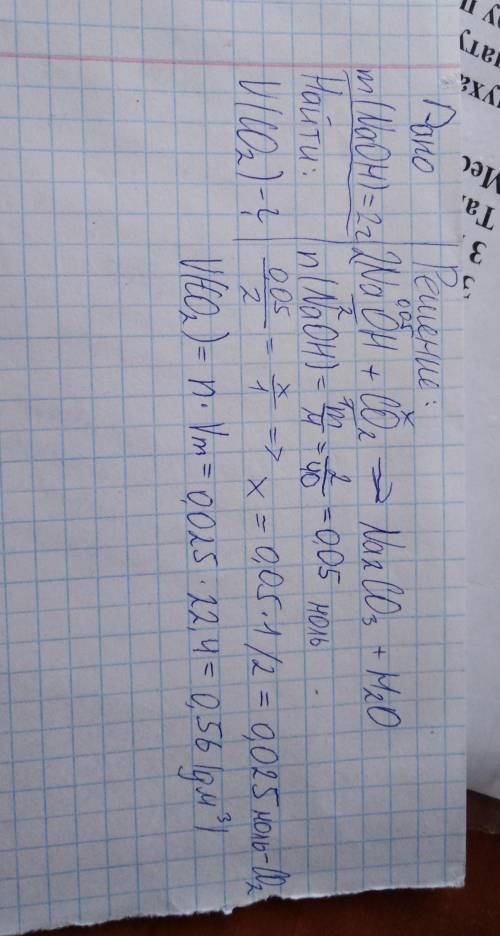 Дано
m(NaOH)=2г
Найти:
V(CO₂)-?
Решение:
0,05 x
2NaOH + CO₂ → Na₂CO₃ + H₂O
2
n(NaOH) = m/M = 2/40 = 0,05 моль
0,05/2 = x/1 => x = 0,05·1/2 = 0,025 моль-CO₂
V(CO₂) = n·Vm = 0,025·22,4 = 0,56 (дм³)